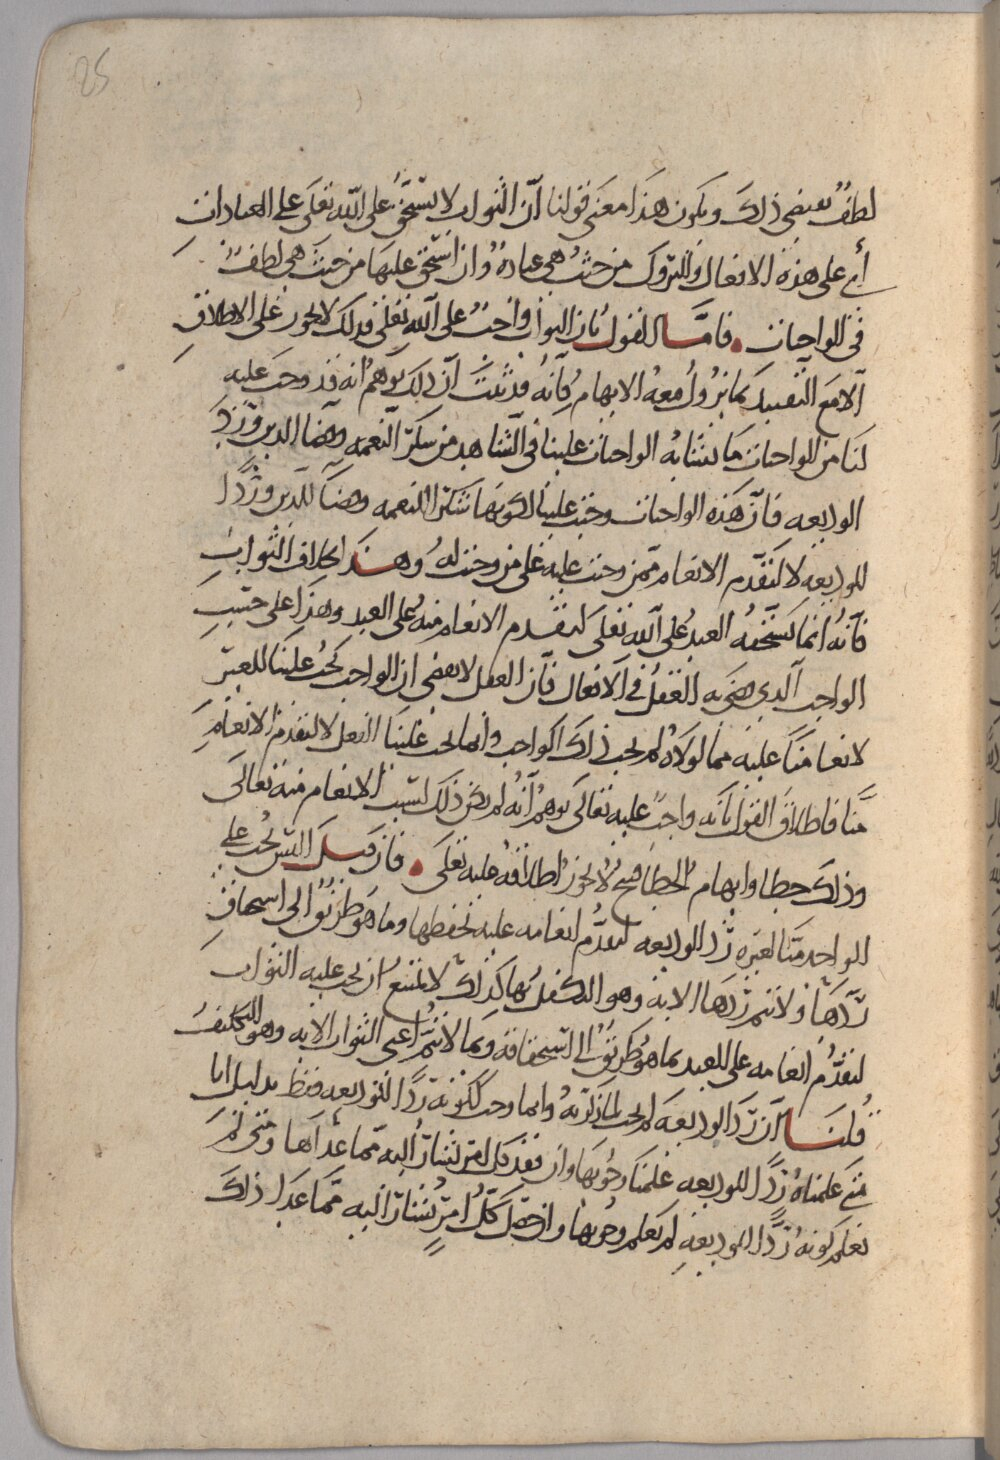 25
لطف يقتضي ذلك ويكون هذا معنى قولنا ان الثواب لا يستحق على الله تعلى على العبادات
أي على هذه الافعال والتروك من حيث هي عبادة وان استحق عليها من حيث هي لطف
في الواجبات فامّا القول بان الثواب واجب على الله تعلى فذلك لا يجوز على الاطلاق
الا مع التقييد بما يزول معه الايهام فانه قد ثبت ان ذلك يوهم انه قد وجب عليه
لنا من الواجبات ما يشابه الواجبات علينا في الشاهد من شكر النعمه وقضا الدين وردّ
الوديعه فان هذه الواجبات وجبت علينا لكونها شكرا للنعمه وقضآ للدين وردّا
للوديعه لا لتقدم الانعام ممّن وجبت عليه على من وجبت له وهذا بخلاف الثواب
فانه انما يستحقه العبد على الله تعلى لتقدم الانعام منه على العبد وهذا على حسب
الواجب الذي يقضي به العقل في الافعال فان العقل لا يقضي ان الواجب يجب علينا للغير
لانعامنا عليه مما لولاه لم يجب ذلك الواجب وانما يجب علينا الفعل لا لتقدم الانعام
منّا فاطلاق القول بانه واجب عليه تعالى يوهم انه لم يكن ذلك لسبب الانعام منه تعالى
وذلك خطا وايهام الخطا قبيح لا يجوز اطلاقه عليه تعلى فان قيل اليس يجب على
الواحد منّا لغيره ردّ الوديعه لتقدّم انعامه عليه بحفظها وما هو طريق الى استحقاق
ردّها ولا يتم ردها الا به وهو التكفل بها كذلك لا يمتنع ان يجب عليه الثواب
لتقدّم انعامه على العبد بما هو طريق الى استحقاقه وبما لا يتم اعني الثواب الا به وهو التكليف
قلنا ان ردّ الوديعه لم يجب لما ذكرته وانما وجب لكونه ردّا للوديعه فقط بدليل انا
متى علمناه ردّا للوديعه علمنا وجوبها وان فقد كل امر يشار اليه مما عداها ومتى لم
نعلم كونه ردّا للوديعة لم نعلم وجوبها وان حصل كلّ امر يشار اليه ممّا عدا ذلك